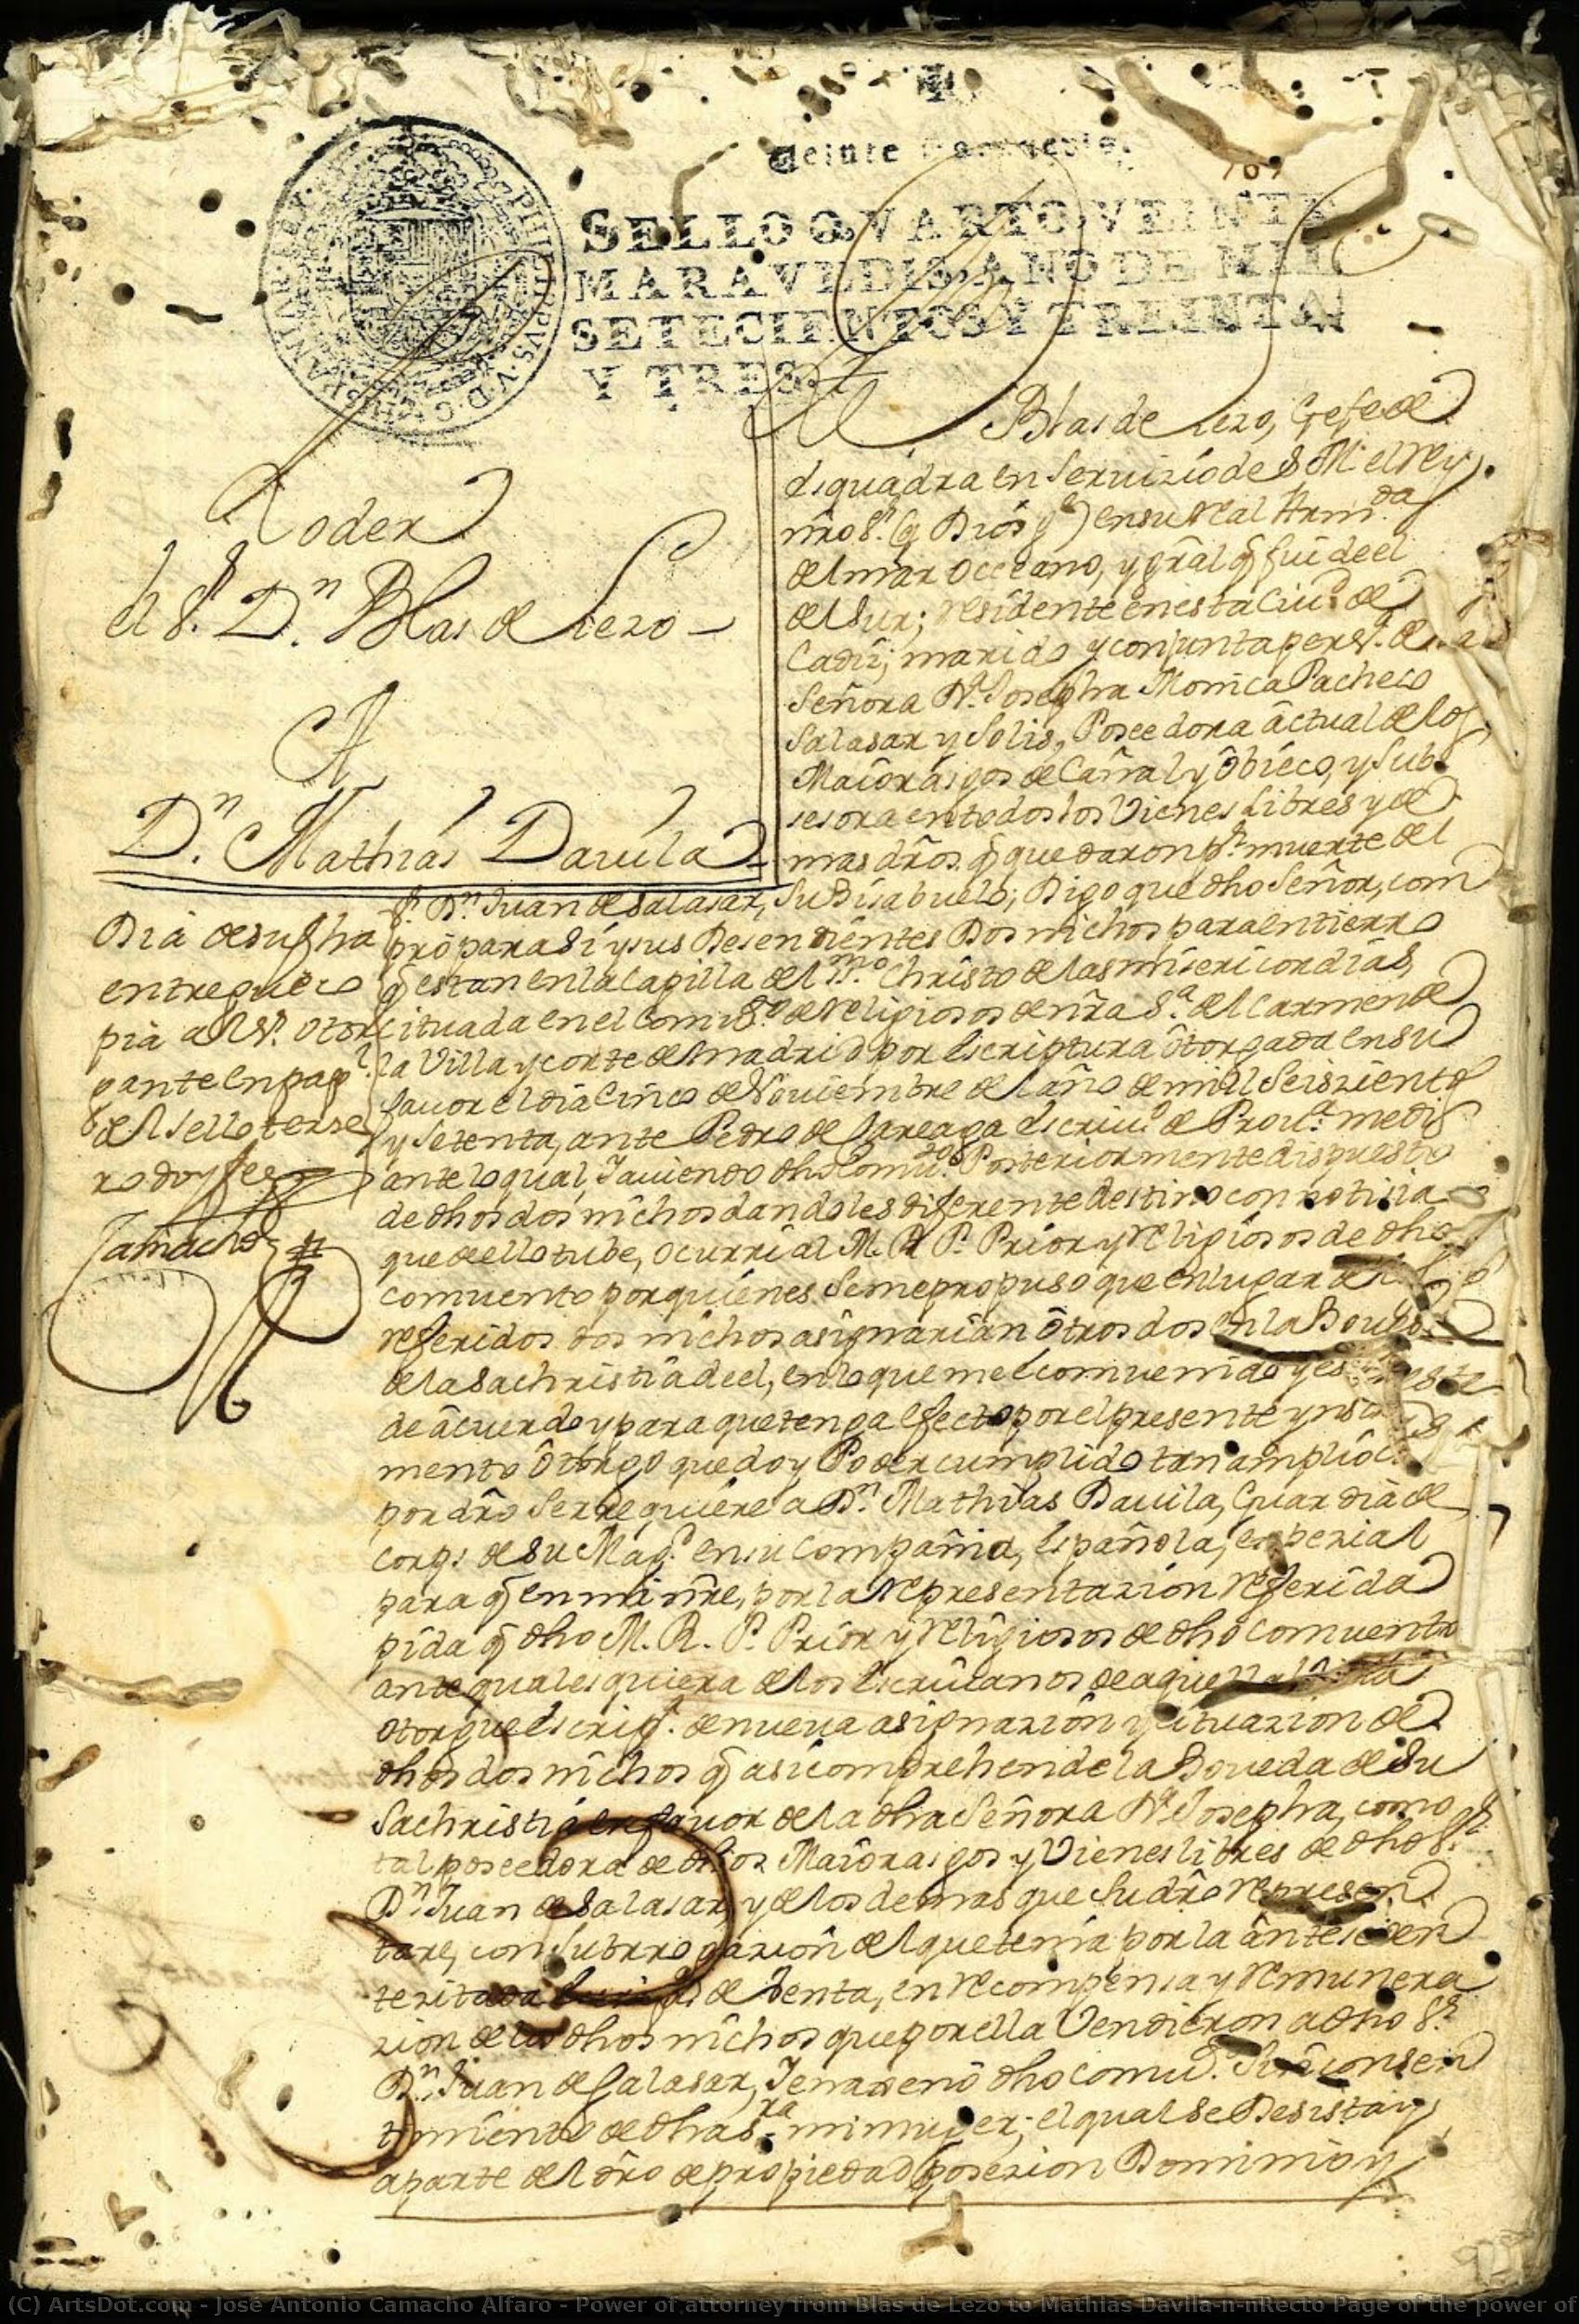 Veinte maravedis.
169
SELLO QVARTO, VEINTE
MARAVEDIS, AÑO DE MIL
SETECIENTOS Y TREINTA
Y TRES.
PHILIPPVS V D G HISPANIAR REX
Poder
el Sr. Dn. Blas de Lezo
A
Dn. Mathias Davila
Blas de Lezo, Gefe de
esquadra en Servizio de S. M. el Rey
nro Sr. (q Dios ge) en su Real Armda
del mar occeano, y gral q fui de el
del Sur; residente en esta Ciud de
Cadiz; marido y conjunta pers.a de la
Señora Da. Josepha Monica Pacheco
Salasar y Solis, Poseedora actual de los
Maiorasgos de Cañal y Obieco, y Sub
sesora en todos los Vienes libres y de
mas dros. q quedaron pr. muerte del
Sr. Dn. Juan de Salasar, su Bisabuelo; Digo que dho Señor, com
pro para si y sus Desendientes Dos nichos para entierro
q estan en la Capilla del Smo. Christo de las misericordias,
cituada en el Comto. de Religiosos de nra Sa. del Carmen de
la Villa y corte de madrid por Escriptura otorgada en su
favor el dia Cinco de Noviembre de el año de mill Seisziento
y Setenta, ante Pedro de Careaga Escriuo. de Prova. medi
ante lo qual, Javiendo dho Comto. Posteriormente dispuesto
de dhos dos nichos dandoles diferente destino con notizia
que de ello tube, ocurri al M. R. P. Prior y Religiosos de dho
comuento por quienes Se me propuso que en lugar de los
referidos dos nichos asignarian otros dos en la Boueda
de la sachristia de el, en lo que me e comuenido y
de acuerdo y para que tenga efecto por el presente ynstru
mento Otorgo que doy Poder cumplido tan amplio
por dro Se requiere a Dn. Mathias Davila, Guardia de
Corps de su Magd. en su Compañia, Española, especial
para q en mi nre, por la representazion referida
pida q dho M. R. P. Prior y Religiosos de dho comuento
ante qualesquiera de los Escriuanos de aquella Villa
otorgue Escripa. de nueua asignazion y cituazion de
dhos dos nichos q asi comprehende la Boueda de Su
Sachristia en fauor de la dha Señora Da. Josepha, como
tal poseedora de dhos Maiorasgos y Vienes libres de dho Sr.
Dn. Juan de Salasar, y de los demas que Su dro represen
tare, con Subrrogazion del que tenia por la anteseden
te zitada Escripa. de Venta, en recompensa y remunera
zion de los dhos nichos que por ella Vendieron a dho Sr.
Dn. Juan de Salasar, Jenageno dho Comto. Sin consen
timiento de dha Sra. mi muger; el qual se Desista y
aparte del dro de propiedad posezion Dominio y
Dia de su fha
entregue co
pia al Sr. otor
gante en pap.l
del Sello terse
ro doy fee
Camacho
(C) ArtsDot.com - José Antonio Camacho Alfaro - Power of attorney from Blas de Lezo to Mathias Davila-n-nRecto Page of the power of